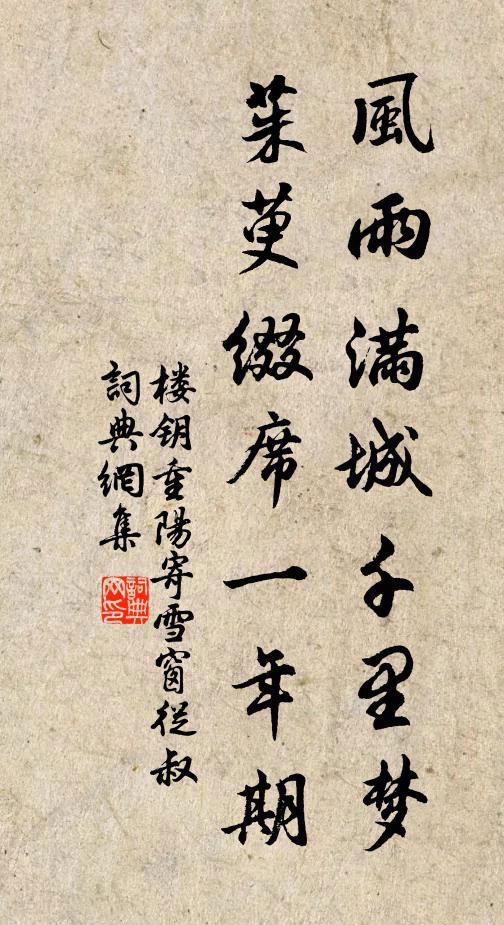 風雨满城千里梦
茱萸缀席一年期
楼钥重陽寄雪窗従叔
詞典網集
詞典网印